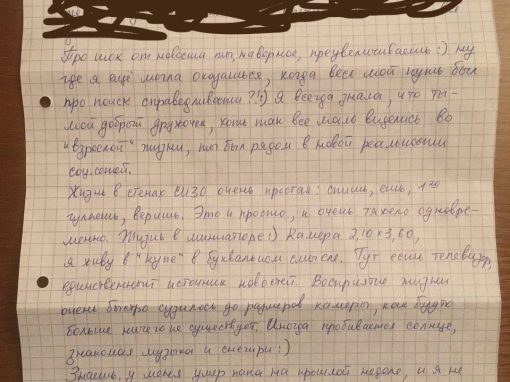 Про шок от новости ты, наверное, преувеличиваешь :) ну
где я ещё могла оказаться, когда весь мой путь был
про поиск справедливости?!:) Я всегда знала, что ты-
мой добрый дружочек, хоть так все мало виделись во
"взрослой" жизни, ты был рядом в новой реальности
соц.сетей.
Жизнь в стенах СИЗО очень простая: спишь, ешь, 1 час
гуляешь, веришь. Это и просто, и очень тяжело одновре-
менно. Жизнь в миниатюре :) Камера 2,10 х 3,60,
я живу в "купе" в буквальном смысле. Тут есть телевизор,
единственный источник новостей. Восприятие жизни
очень быстро сузилось до размеров камеры, как будто
больше ничего не существует. Иногда пробивается солнце,
знакомая музыка и снегири :)
Знаешь, у меня умер папа на прошлой неделе, и я не